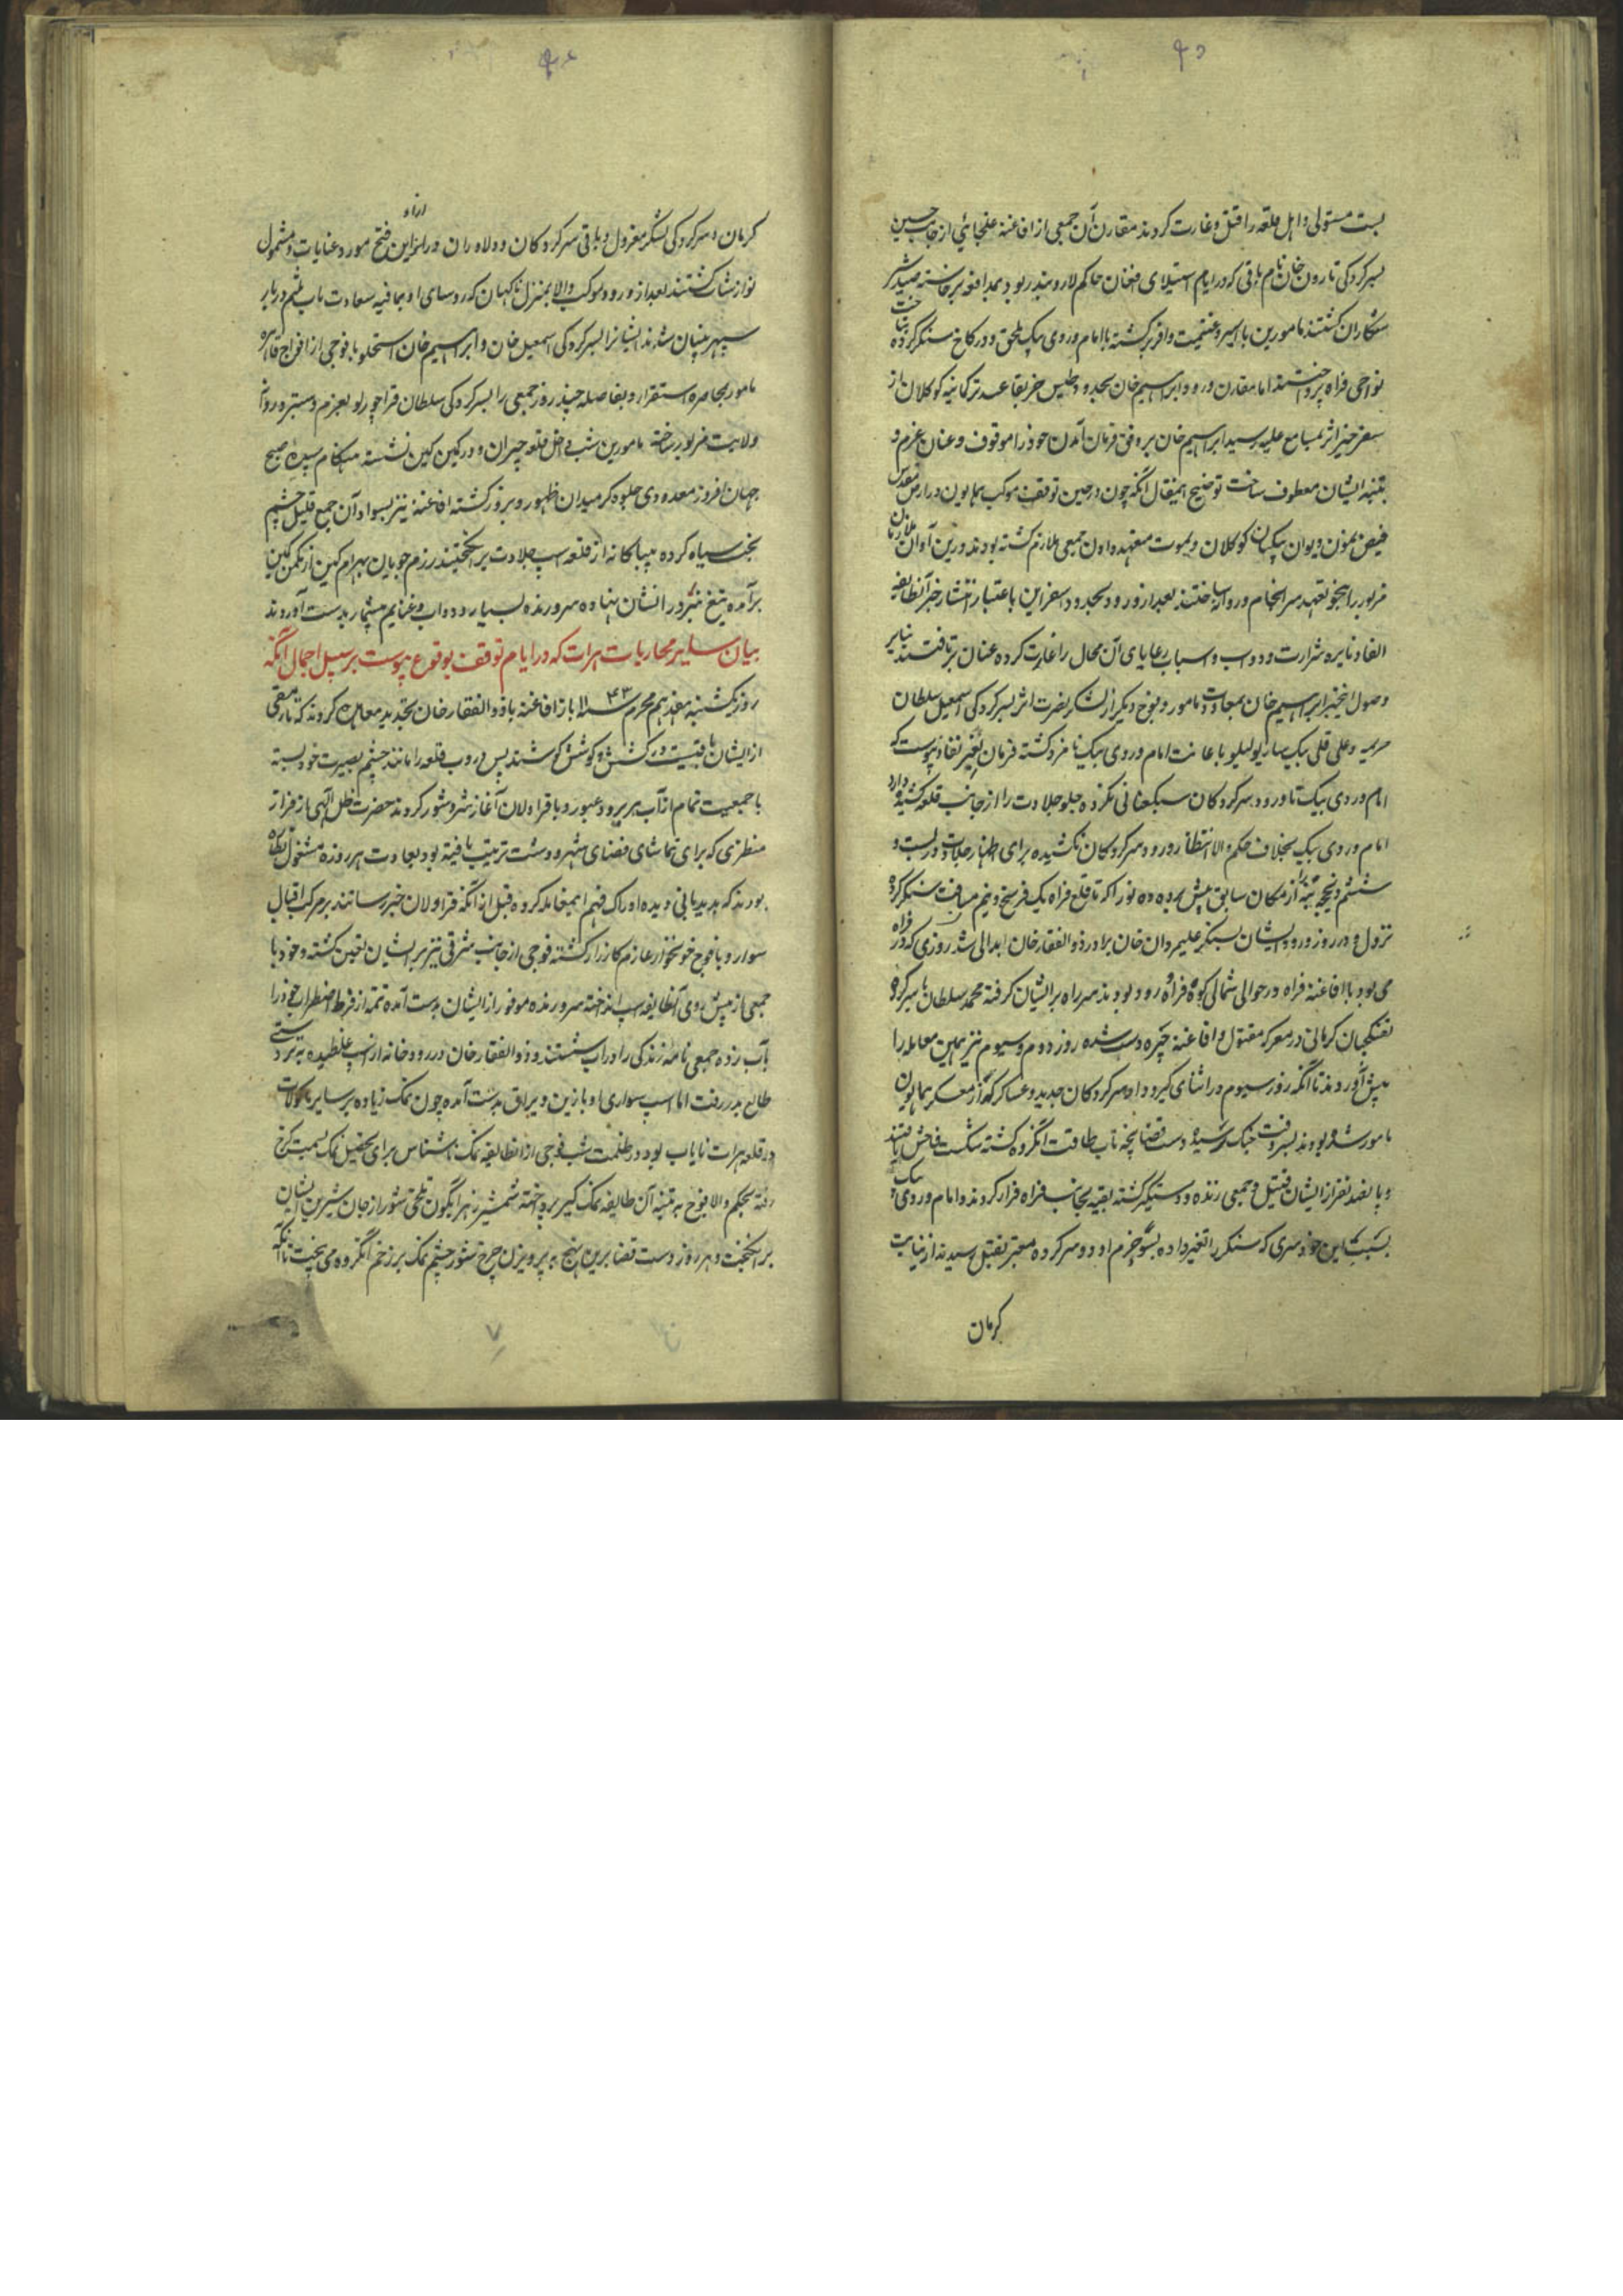 بست مستولی و اهل قلعه را قتل و غارت کردند مقارن آن جمعی از افاغنه غلجائی از جانب حسین
بسرکردگی تارون خان نام باقی که در ایام استیلای افغان حاکم لار و بندر بود بمدافعه برخاسته صید شیر
شکاران گشتند مامورین با اسیر و غنیمت وافر برگشته با امام ویردی بیک ملحق و در کاخ سنگر کرده بتاخت
نواحی فراه پرداختند اما مقارن ورود ابراهیم خان بحدود طبس خبر بقاعد ترکمانیه کوکلان از
سفر خیر اثر بمسامع علیه رسید ابراهیم خان بر وفق فرمان آمدن خود را موقوف و عنان عزم
بتنبیه ایشان معطوف ساخت توضیح این مقال آنکه چون در حین توقف موکب همایون در ارض مقدس
فیض نمون و یوان بیکیان کوکلان و یموت متعهد دادن جمعی ملازم گشته بودند درین آوان ملازمان
مزبور را بنحو تعهد سرانجام و روانه ساختند بعد از ورود بحدود اسفراین باعتبار انتشار خبر آنطایفه
القاد نایره شرارت و دواب و اسباب رعایای آن محال را غارت کرده عنان برتافتند بنابر
وصول اینخبر ابراهیم خان بمعاودت مامور و فوج دیگر از لشکر نصرت اثر بسرکردگی اسمعیل سلطان
خزیمه و علی قلی بیک ساریولیلو باعانت امام ویردی بیک نامزد گشته فرمان تغییر نفاذ پیوست که
امام ویردی بیک تا ورود سرکردگان سبکعنانی نکرده جلو جلادت را از جانب قلعه کشیده دارد
امام ویردی بیک بخلاف حکم والا انتظار ورود سرکردگان نکشیده برای اظهار جلادت در بیست و
ششم ذیحجه بنه را از مکان سابق پیش برده ده نو را که تا قلعه فراه یک فرسخ و نیم مسافت سنگر کرده
نزول و در روز ورود ایشان بسنگر علیمردان خان برادر ذوالفقار خان ابدالی شد روزی که در فراه
می بود با افاغنه فراه در حوالی شمالی کوه فراه رود بودند سر راه بر ایشان گرفته محمد سلطان با سرکرده
تفنگچیان کرمانی در معرکه مقتول و افاغنه چیره دست شده روز دوم و سیوم نیز بهمین معامله را
پیش آوردند تا آنکه روز سیوم در اثنای گیرودار سرکردگان جدید و عساکر که از معسکر همایون
مامور شده بودند بسر وقت جنگ رسیده دست قضا پنجه تاب طاقت آنگروه گشته شکست فاحش یافتند
و پانصد نفر از ایشان قتیل و جمعی زنده و دستگیر گشته بقیه بجانب فراه فرار کردند و امام ویردی بیک
بسبب این خودسری که سنگر را تغییر داده بسوء حزم او دو سرکرده معتبر بقتل رسیدند از نیابت
کرمان
کرمان و سرکردگی لشکر معزول و باقی سرکردگان و دلاوران در ازاء این فتح مورد عنایات و مشمول
نوازشات گشتند بعد از ورود موکب والا بمنزل ناگهان که روسای اوبماقیه سعادت یاب لثم دربار
سپهر بنیان شدند ایشانرا بسرکردگی اسمعیل خان و ابراهیم خان استجلو با فوجی از افواج قاهره
مامور بمحاصره استقرار و بفاصله چند روز جمعی را بسرکردگی سلطان قراچورلو بعزم دستبرد روانه
ولایت مزبور ساخته مامورین شب داخل قلعه چیران و در کمین کین نشسته هنگام سپیده صبح
جهان افروز معدودی جلوه گر میدان ظهور و بروز گشته افاغنه نیز بسواد آن جمع قلیل چشم
بخت سیاه کرده بیباکانه از قلعه اسب جلادت برانگیختند رزم جویان بهرام کین از مکمن کین
برآمده تیغ تیز در ایشان نهاده سر و زنده بسیار و دواب و غنایم بیشمار بدست آوردند
بیان سایر محاربات هرات که در ایام توقف بوقوع پیوست بر سبیل اجمال آنکه
روز یکشنبه هفدهم محرم سنه ۱۱۴۳ باز افاغنه با ذوالفقار خان تجدید معاهده کردند که تا رمقی
از ایشان باقیست در کشش و کوشش کوشند پس دروب قلعه را مانند چشم بصیرت خود بسته
با جمعیت تمام از آب هریرود عبور و با قراولان آغاز شر و شور کردند حضرت ظل الهی باز فراز
منظری که برای تماشای فضای شهر و دشت ترتیب یافته بود بعادت هر روزه مشغول نظاره
بودند که بدیدبانی دیده ادراک فهم اینمعنی کرده قبل از آنکه قراولان خبر رسانند بر مرکب اقبال
سوار و با فوج خونخوار عازم کارزار گشته فوجی از جانب شرقی نیز بر ایشان تعیین گشته و خود با
جمعی از پیش روی آنطایفه اسب انداخته سر و زنده موفور از ایشان بدست آمده تتمه از فرط اضطراب خود را
بآب زده جمعی نامه زندگی را در آب شستند و ذوالفقار خان در رودخانه از اسب غلطیده بتر دستی
طالع بدر رفت اما اسب سواری او با زین و یراق بدست آمده چون نمک زیاده بر سایر ماکولات
در قلعه هرات نایاب بود در ظلمت شب فوجی از آنطایفه نمک ناشناس برای تحصیل نمک بسمت کرخ
رفته بحکم والا فوج به تنبیه آن طایفه نمک گیر پرداخته شمشیر زهر آبگون تلخی شور از جان شیرین ایشان
برانگیخت و هر روز دست قضا برین نهج به پرویزن چرخ شور چشم نمک بر زخم آنگروه می بیخت تا آنکه